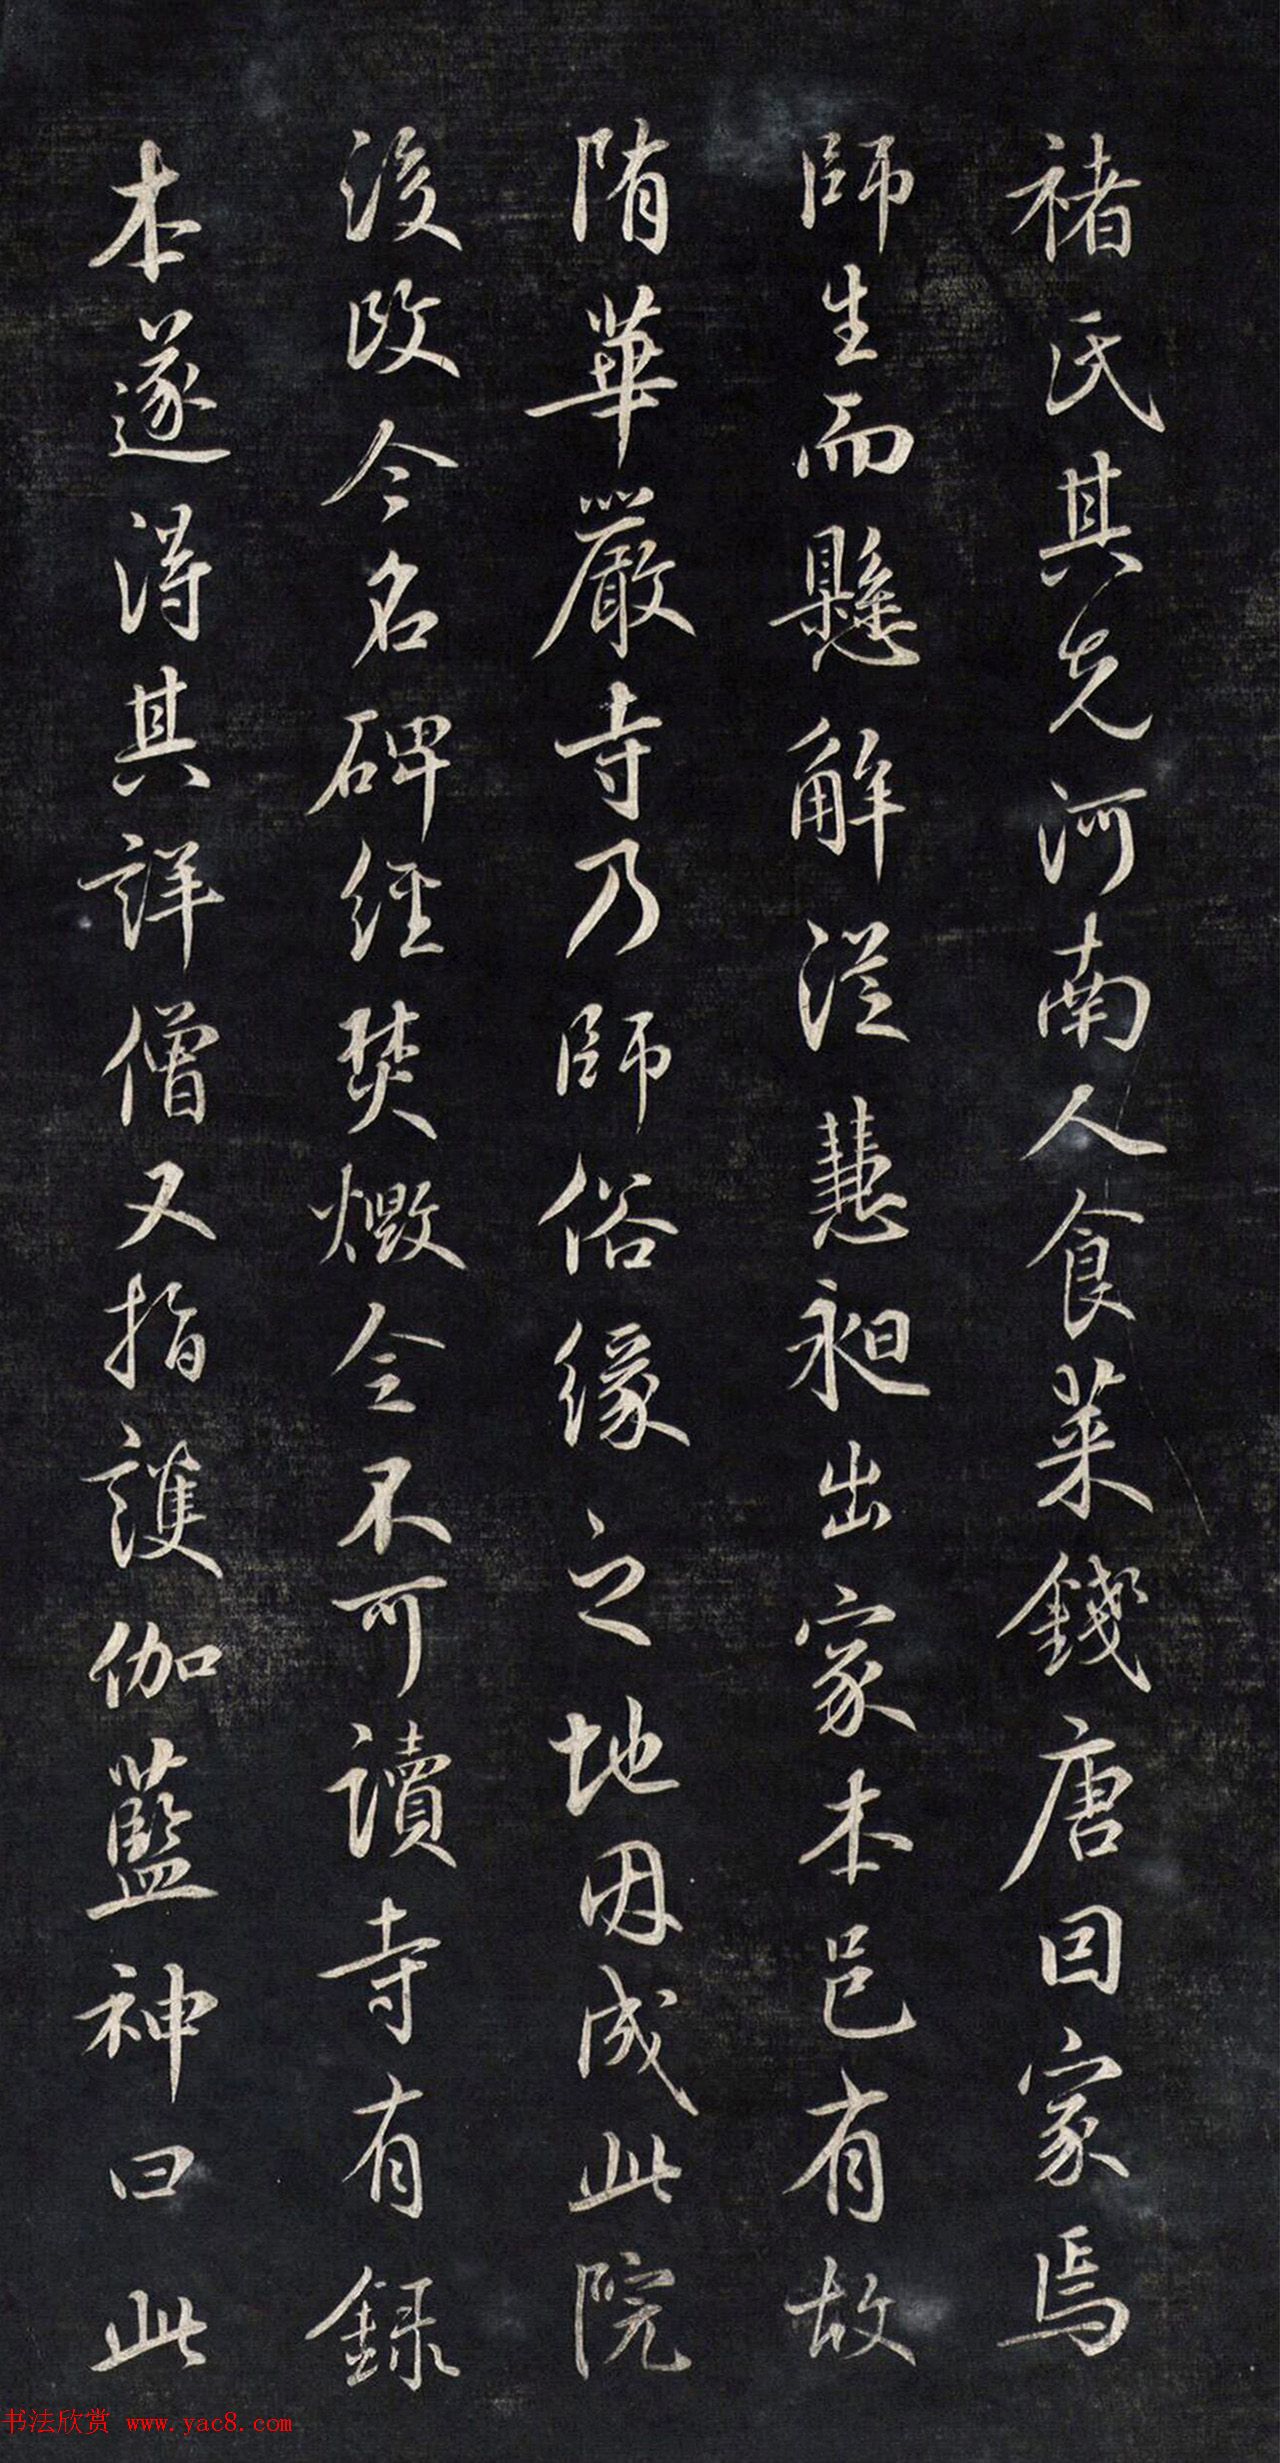 褚氏其先河南人食菜錢唐因家焉
師生而懸解從慧昶出家本邑有故
隋華嚴寺乃師俗緣之地因成此院
後改今名碑經焚燬今不可讀寺有録
本遂得其詳僧又指護伽藍神曰此
书法欣赏 www.yac8.com